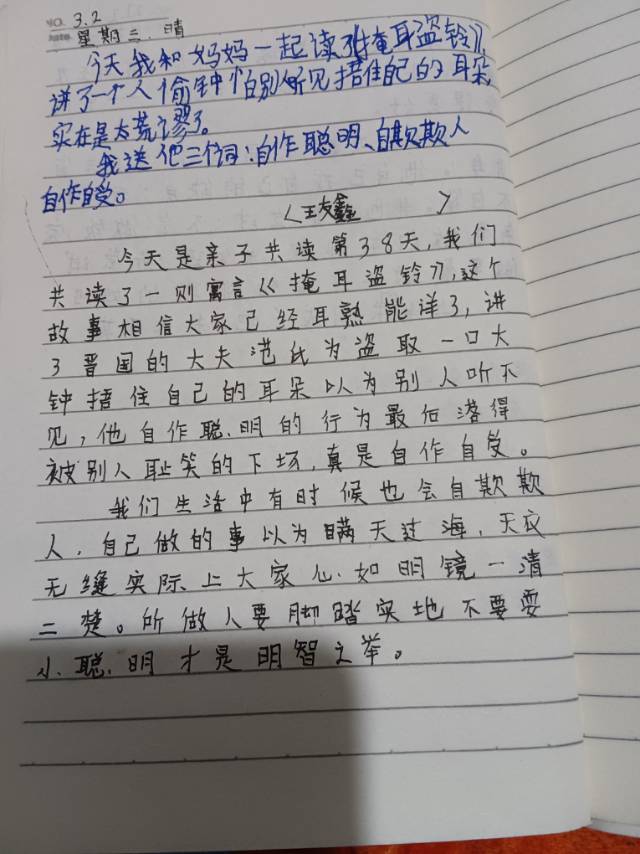 NO. 3.2
Date. 星期二. 晴
今天我和妈妈一起读了《掩耳盗铃》,
讲了一个人偷钟怕别人听见捂住自己的耳朵,
实在是太荒谬了。
我送他三个词:自作聪明、自欺欺人
自作自受。
〈王友鑫 〉
今天是亲子共读第38天,我们
共读了一则寓言《掩耳盗铃》,这个
故事相信大家已经耳熟能详了,讲
了晋国的大夫范氏为盗取一口大
钟捂住自己的耳朵以为别人听不
见,他自作聪明的行为最后落得
被别人耻笑的下场,真是自作自受。
我们生活中有时候也会自欺欺
人,自己做的事以为瞒天过海,天衣
无缝实际上大家心如明镜一清
二楚。所做人要脚踏实地不要耍
小聪明才是明智之举。